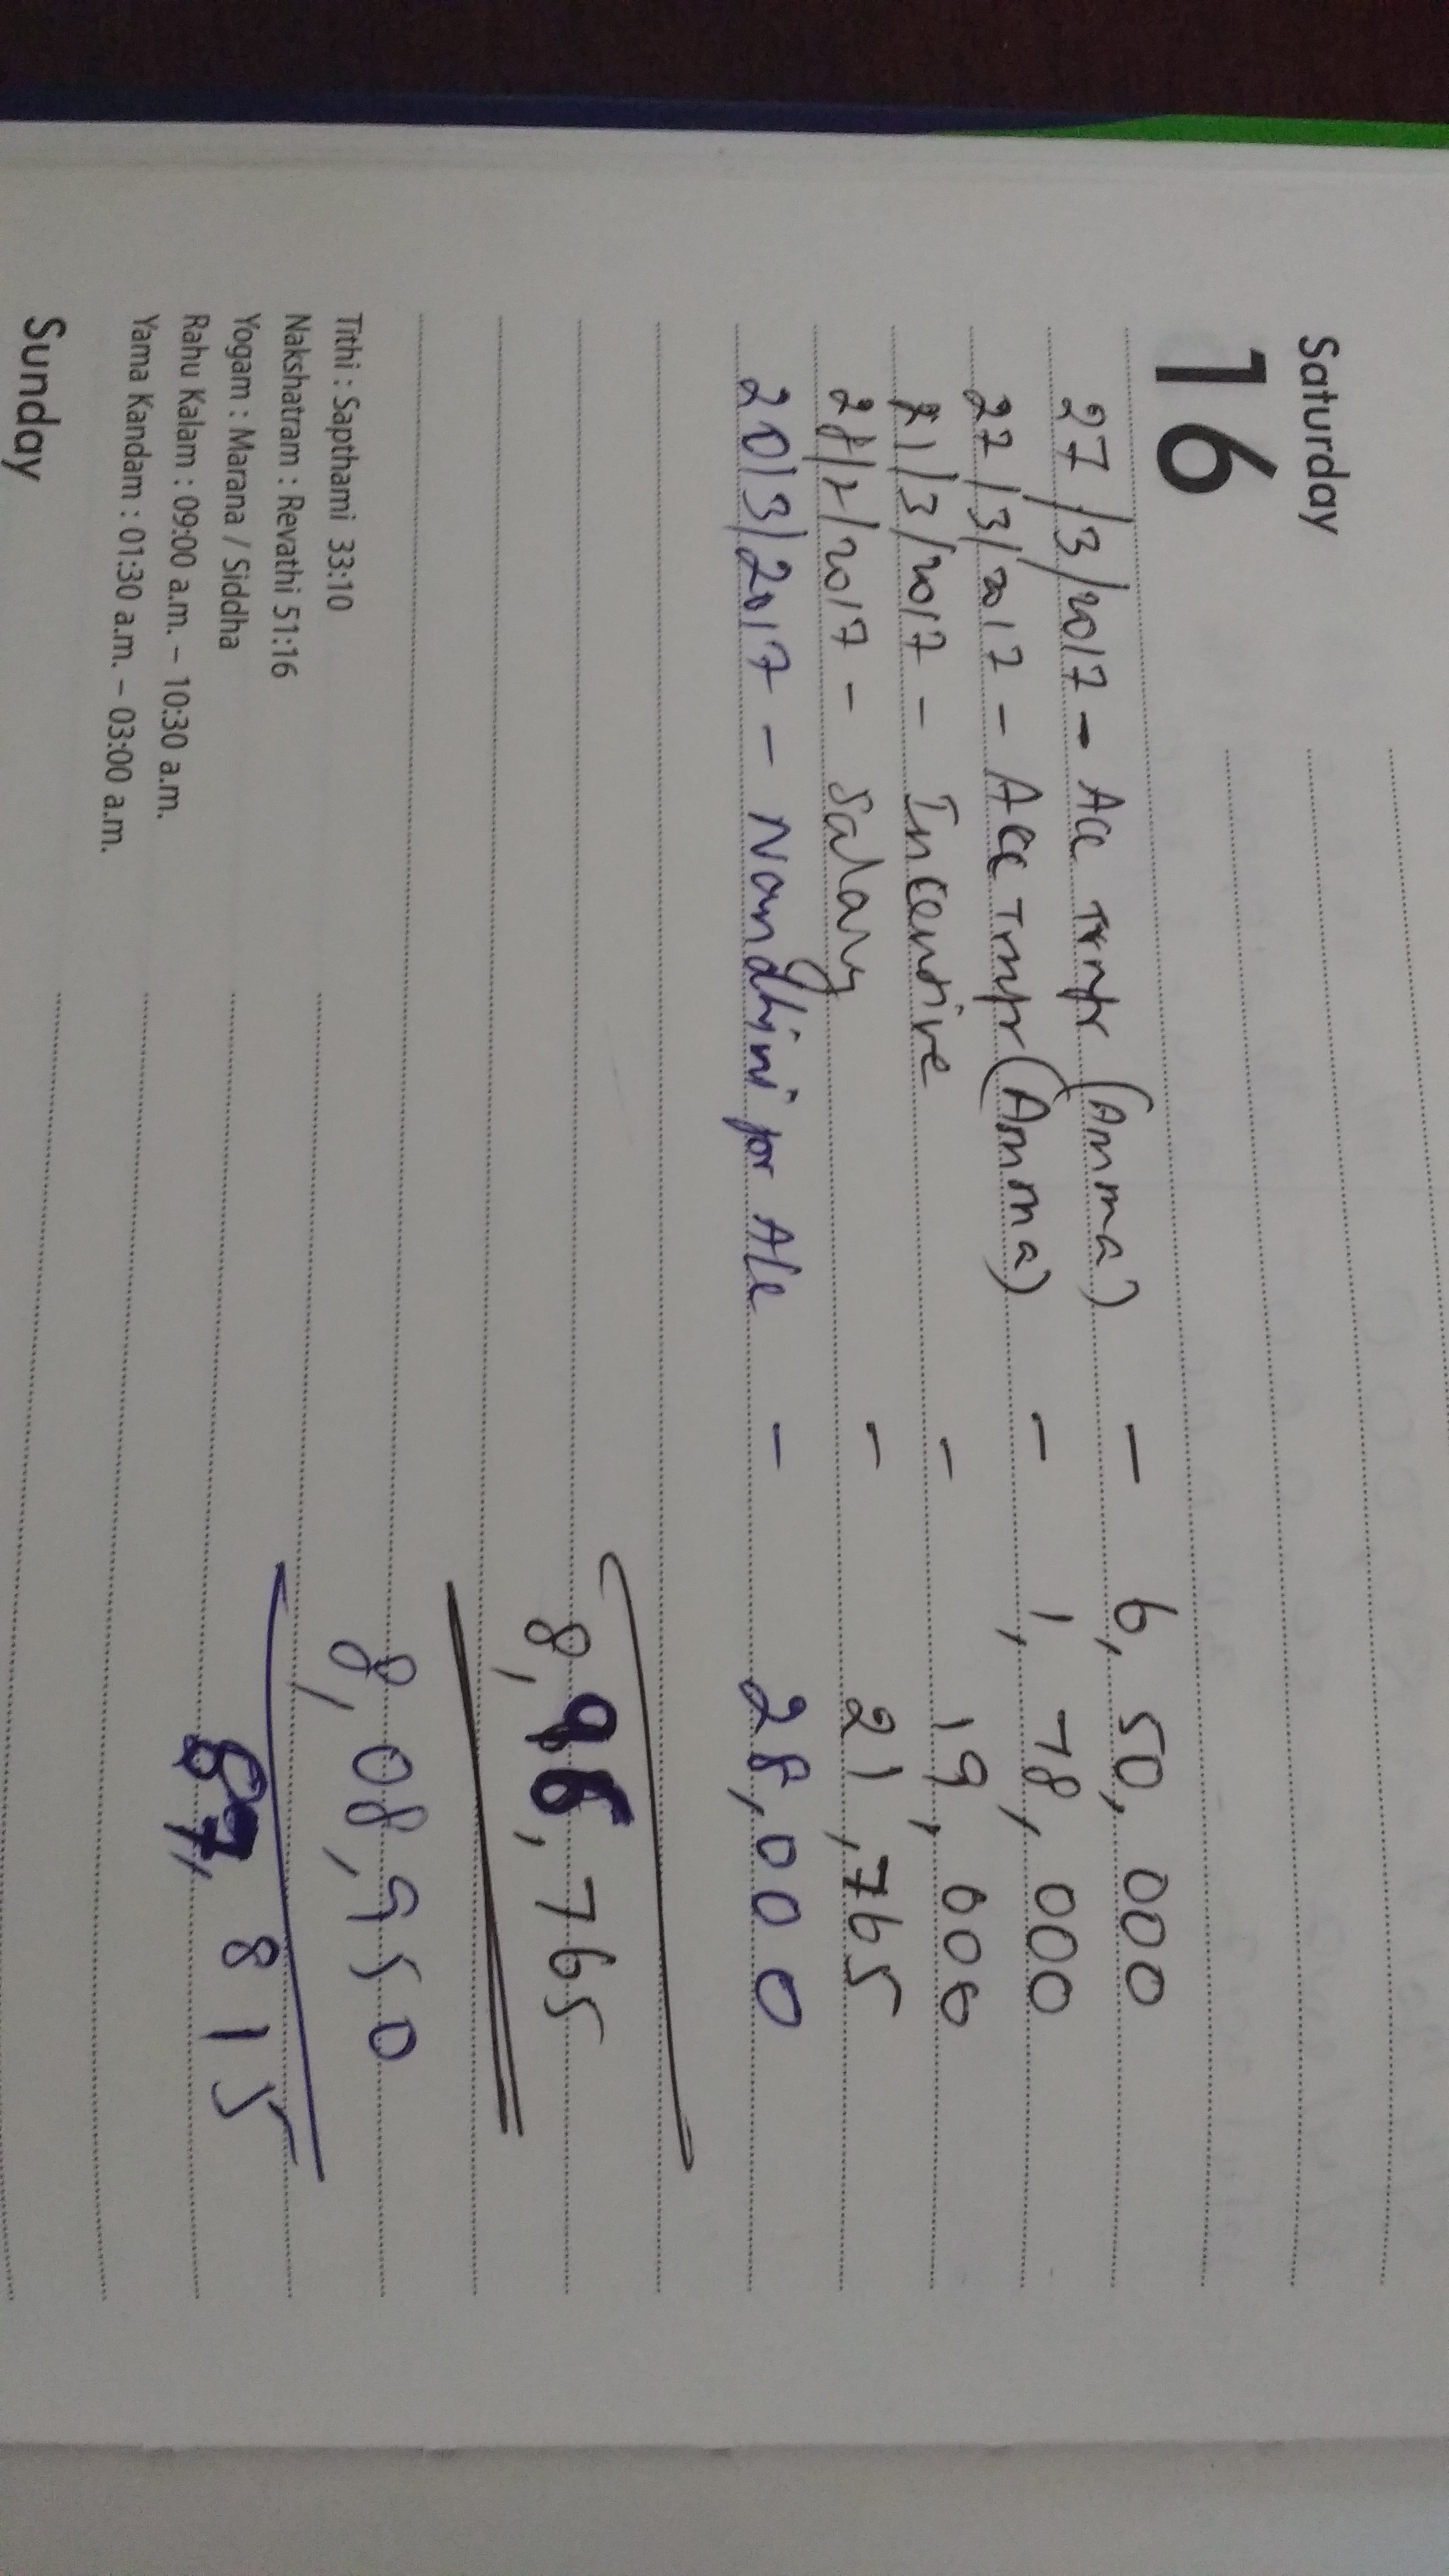 Saturday
16
27/3/2017 - Acc Trnfr (Amma) - 6,50,000
22/3/2017 - Acc Trnfr (Amma) - 1,78,000
21/3/2017 - Incentive - 19,000
28/2/2017 - Salary - 21,765
20/3/2017 - Nandhini for Alc - 28,000
8,96,765
8,08,950
87,815
Tithi : Sapthami 33:10
Nakshatram : Revathi 51:16
Yogam : Marana / Siddha
Rahu Kalam : 09:00 a.m. – 10:30 a.m.
Yama Kandam : 01:30 a.m. – 03:00 a.m.
Sunday